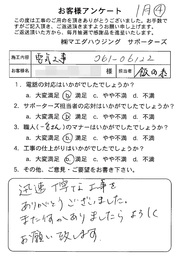 1月④
お客様アンケート
この度は工事のご用命を頂きありがとうございました。お手数で
すがご記入頂き、ご返送頂きますようお願い申し上げます。
ご返送いただいた方から、毎月抽選で感謝品を進呈いたします。
㈱マエダハウジング サポーターズ
施工内容 電気工事 061-06122
お客様名 様 担当者
1、電話の対応はいかがでしたでしょうか?
a、大変満足 b、満足 c、やや不満 d、不満
2、サポーターズ担当者の対応はいかがでしたでしょうか?
a、大変満足 b、満足 c、やや不満 d、不満
a、大変満足 b、満足 c、やや不満 d、不満
4、工事の仕上がりはいかがでしたでしょうか?
a、大変満足 b、満足 c、やや不満 d、不満
5、その他、ご意見・ご要望をお聞かせ下さい
迅速丁寧な工事を
ありがとうございました。
また何かありましたらよろしく
お願い致します